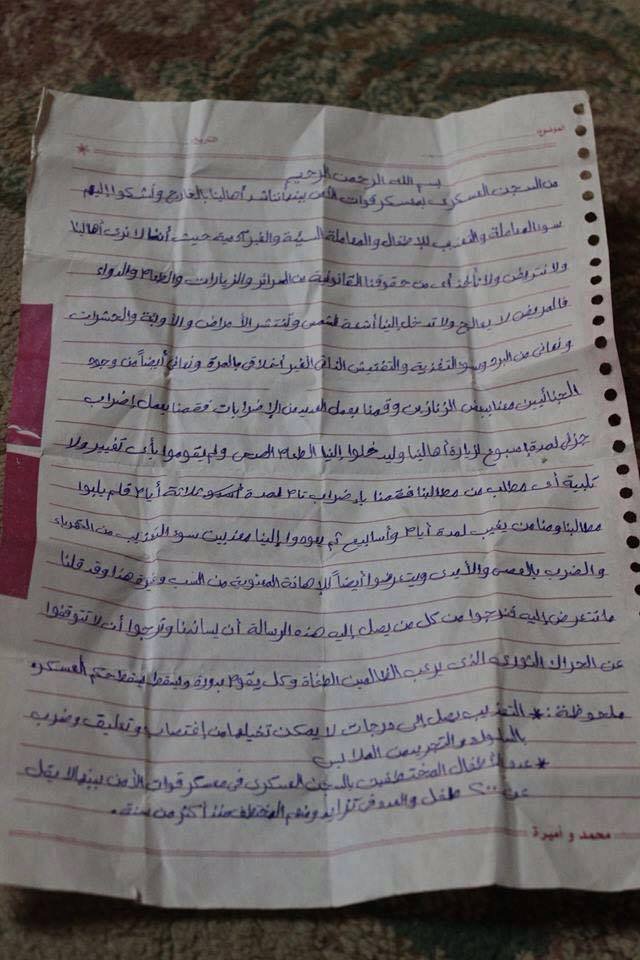 الموضوع:
التاريخ:
بسم الله الرحمن الرحيم
من السجن العسكري بمعسكر قوات الأمن ببنها نناشد أهالينا بالخارج ونشكوا إليهم
سوء المعاملة والتعذيب للأطفال والمعاملة السيئة والغير آدمية حيث أننا لا نرى أهالينا
ولا نتريض ولا نأخذ أى من حقوقنا القانونية من السراير والزيارات والطعام والدواء
فالمريض لا يعالج ولا تدخل إلينا أشعة الشمس وتنتشر الأمراض والأوبئة والحشرات
ونعانى من البرد وسوء التغذية والتفتيش الذاتى الغير أخلاقى بالمرة ونعانى أيضاً من وجود
الجنائيين معنا ببعض الزنازين وقمنا بعمل العديد من الإضرابات فقمنا بعمل إضراب
جزئى لمدة إسبوع لزيارة أهالينا وليدخلوا إلينا الطعام الصحى ولم يقوموا بأى تغيير ولا
تلبية أى مطلب من مطالبنا فقمنا بإضراب تام لمدة ثلاثة أيام فلم يلبوا
مطالبنا ومنا من يغيب لمدة أيام وأسابيع ثم يعودوا إلينا معذبين سوء التعذيب من الكهرباء
والضرب بالعصى والأيدى ويتعرضوا أيضاً للإهانة المعنوية من السب وغيره هذا وقد قلنا
ما نتعرض إليه فنرجوا من كل من يصل إليه هذه الرسالة أن يساندنا ونرجوا أن لا تتوقفوا
عن الحراك الثورى الذى يرعب الظالمين الطغاة وكل يقوم بدوره وليسقط يسقط حكم العسكر
ملحوظة: * التعذيب يصل إلى درجات لا يمكن تخيلها من إغتصاب وتعليق وضرب
بالسلوك والتجريد من الملابس
* عدد الأطفال المختطفين بالسجن العسكرى فى معسكر قوات الأمن ببنها لا يقل
عن ٢٠٠ طفل والعدد فى تزايد ومنهم المختطف منذ أكثر من سنة.
محمد و أميرة